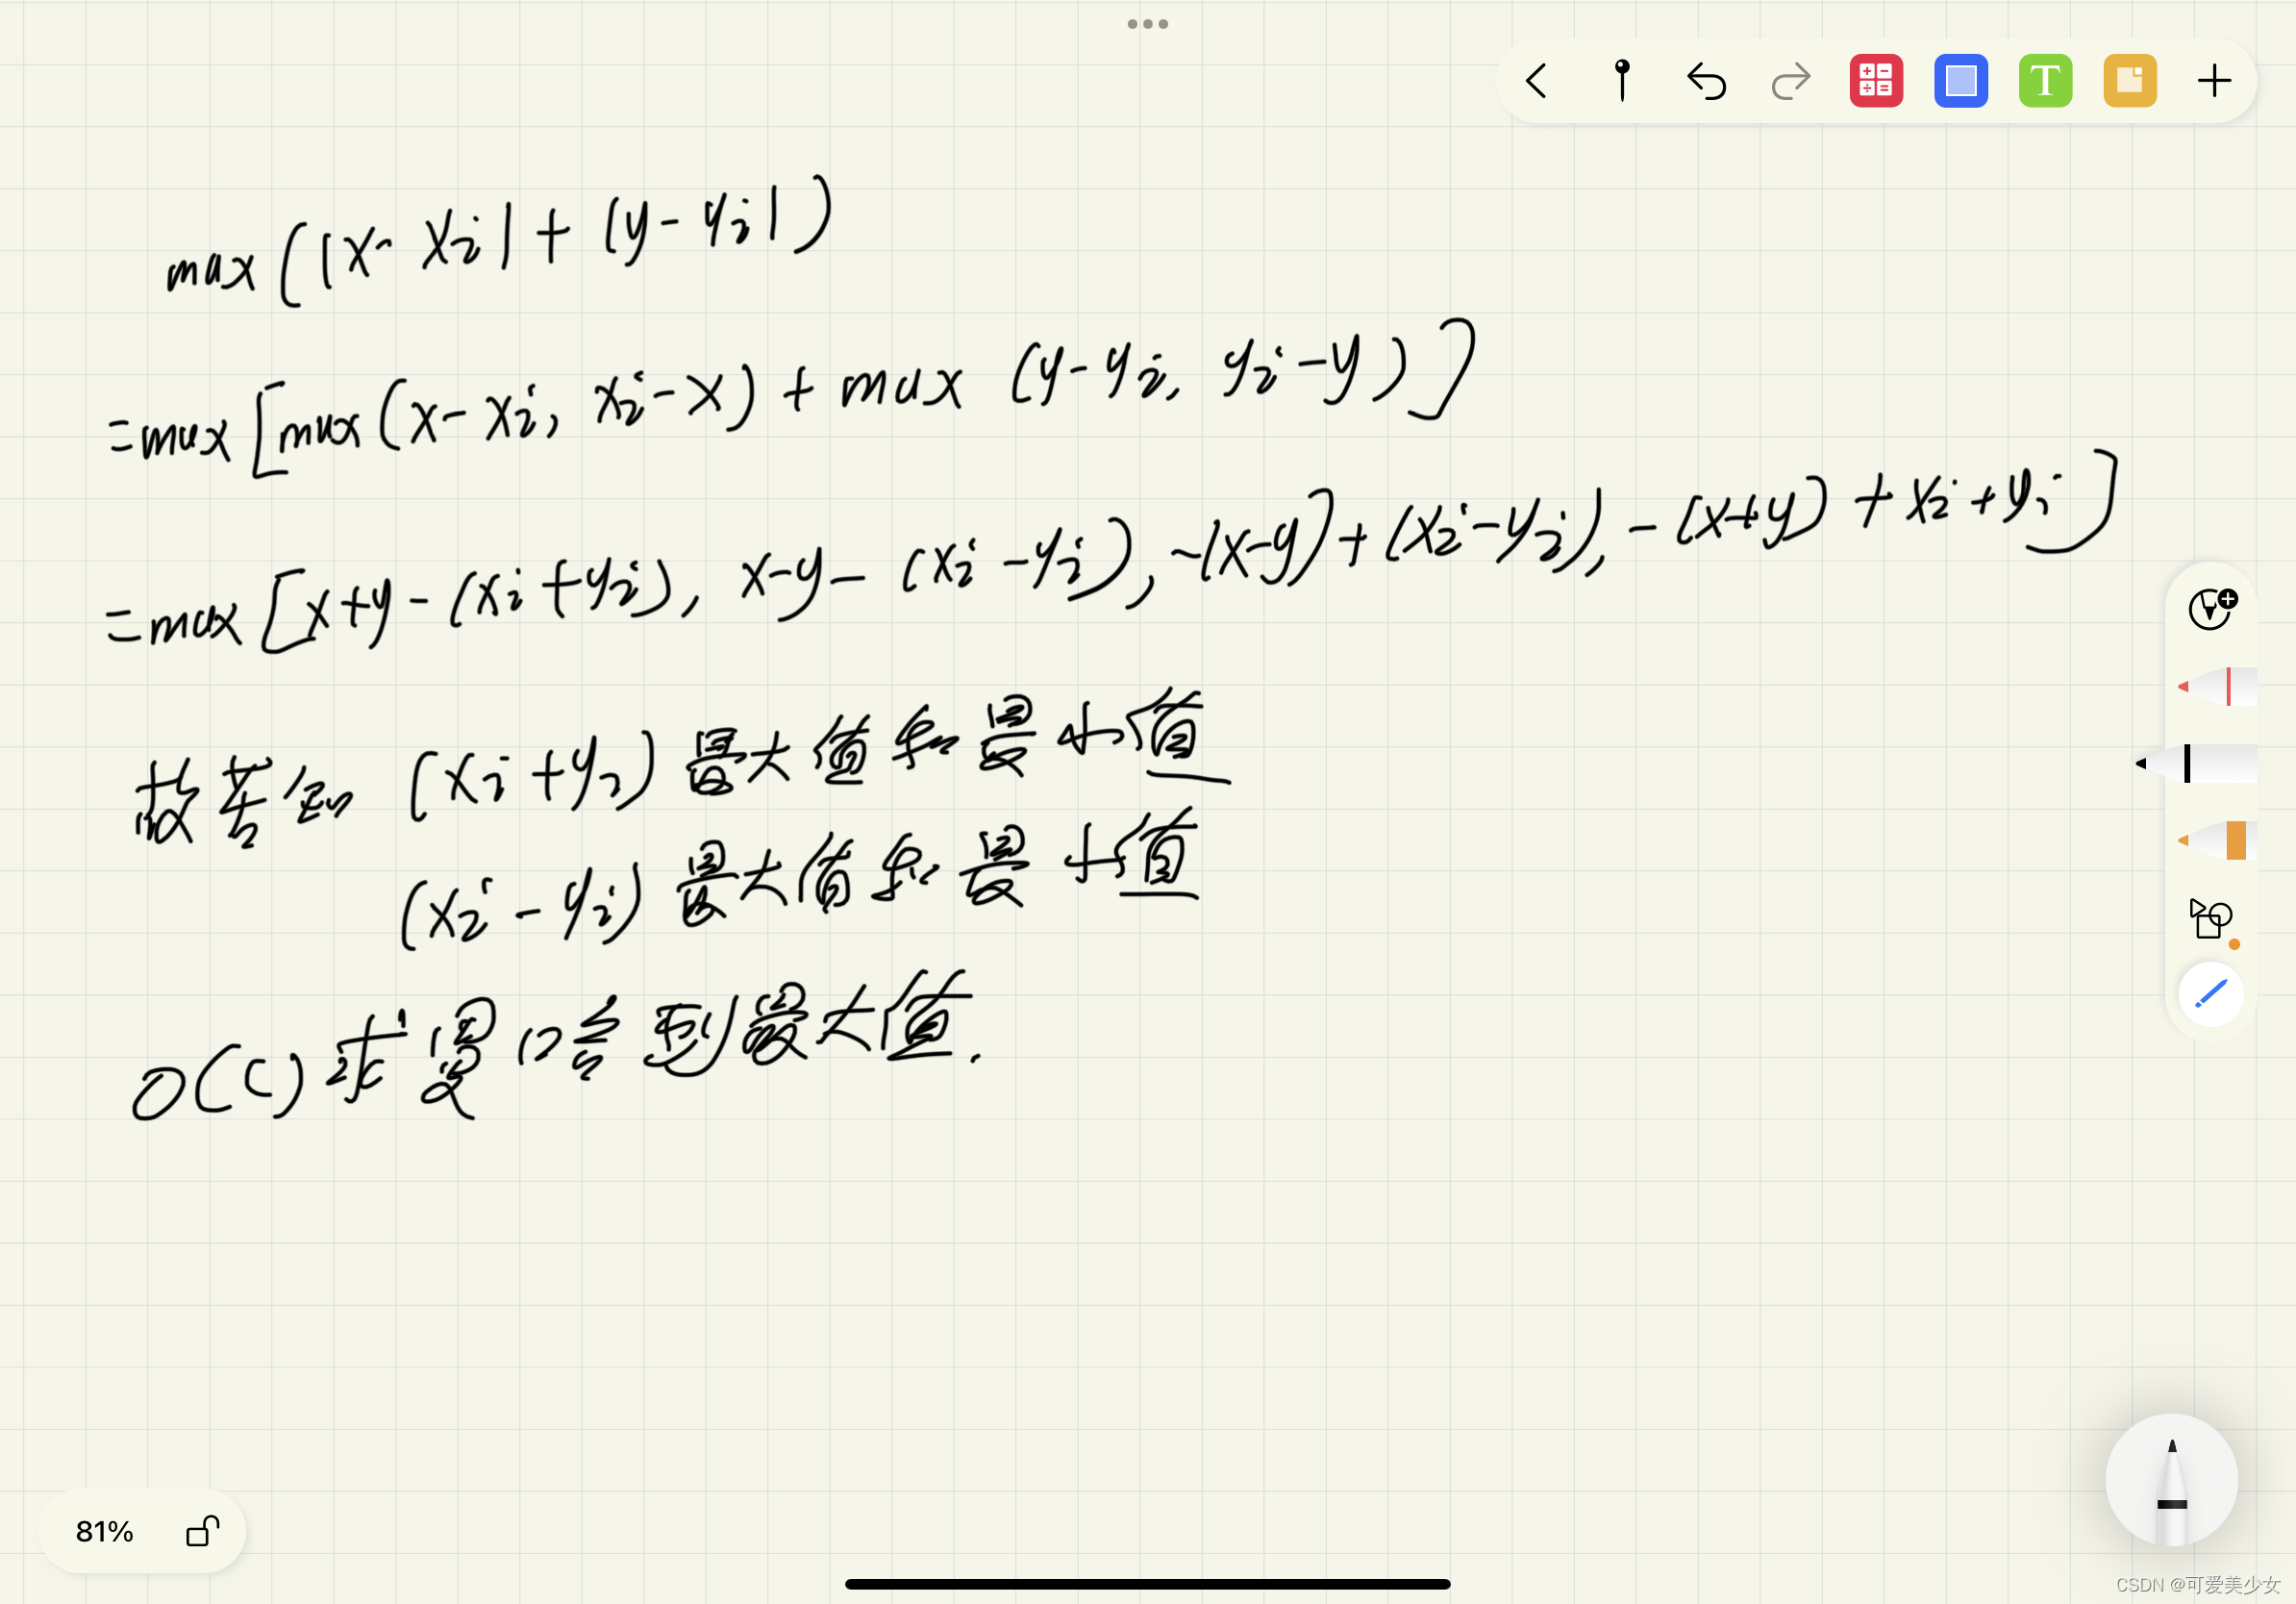 max(|x-xi|+|y-yi|)
=max[max(x-xi, xi-x)+max(y-yi, yi-y)]
=max[x+y-(xi+yi), x-y-(xi-yi), -(x-y)+(xi-yi), -(x+y)+xi+yi]
故若知(xi+yi)最大值和最小值
(xi-yi)最大值和最小值
O(C)求最后答到最大值.
T
81%
CSDN @可爱美少女